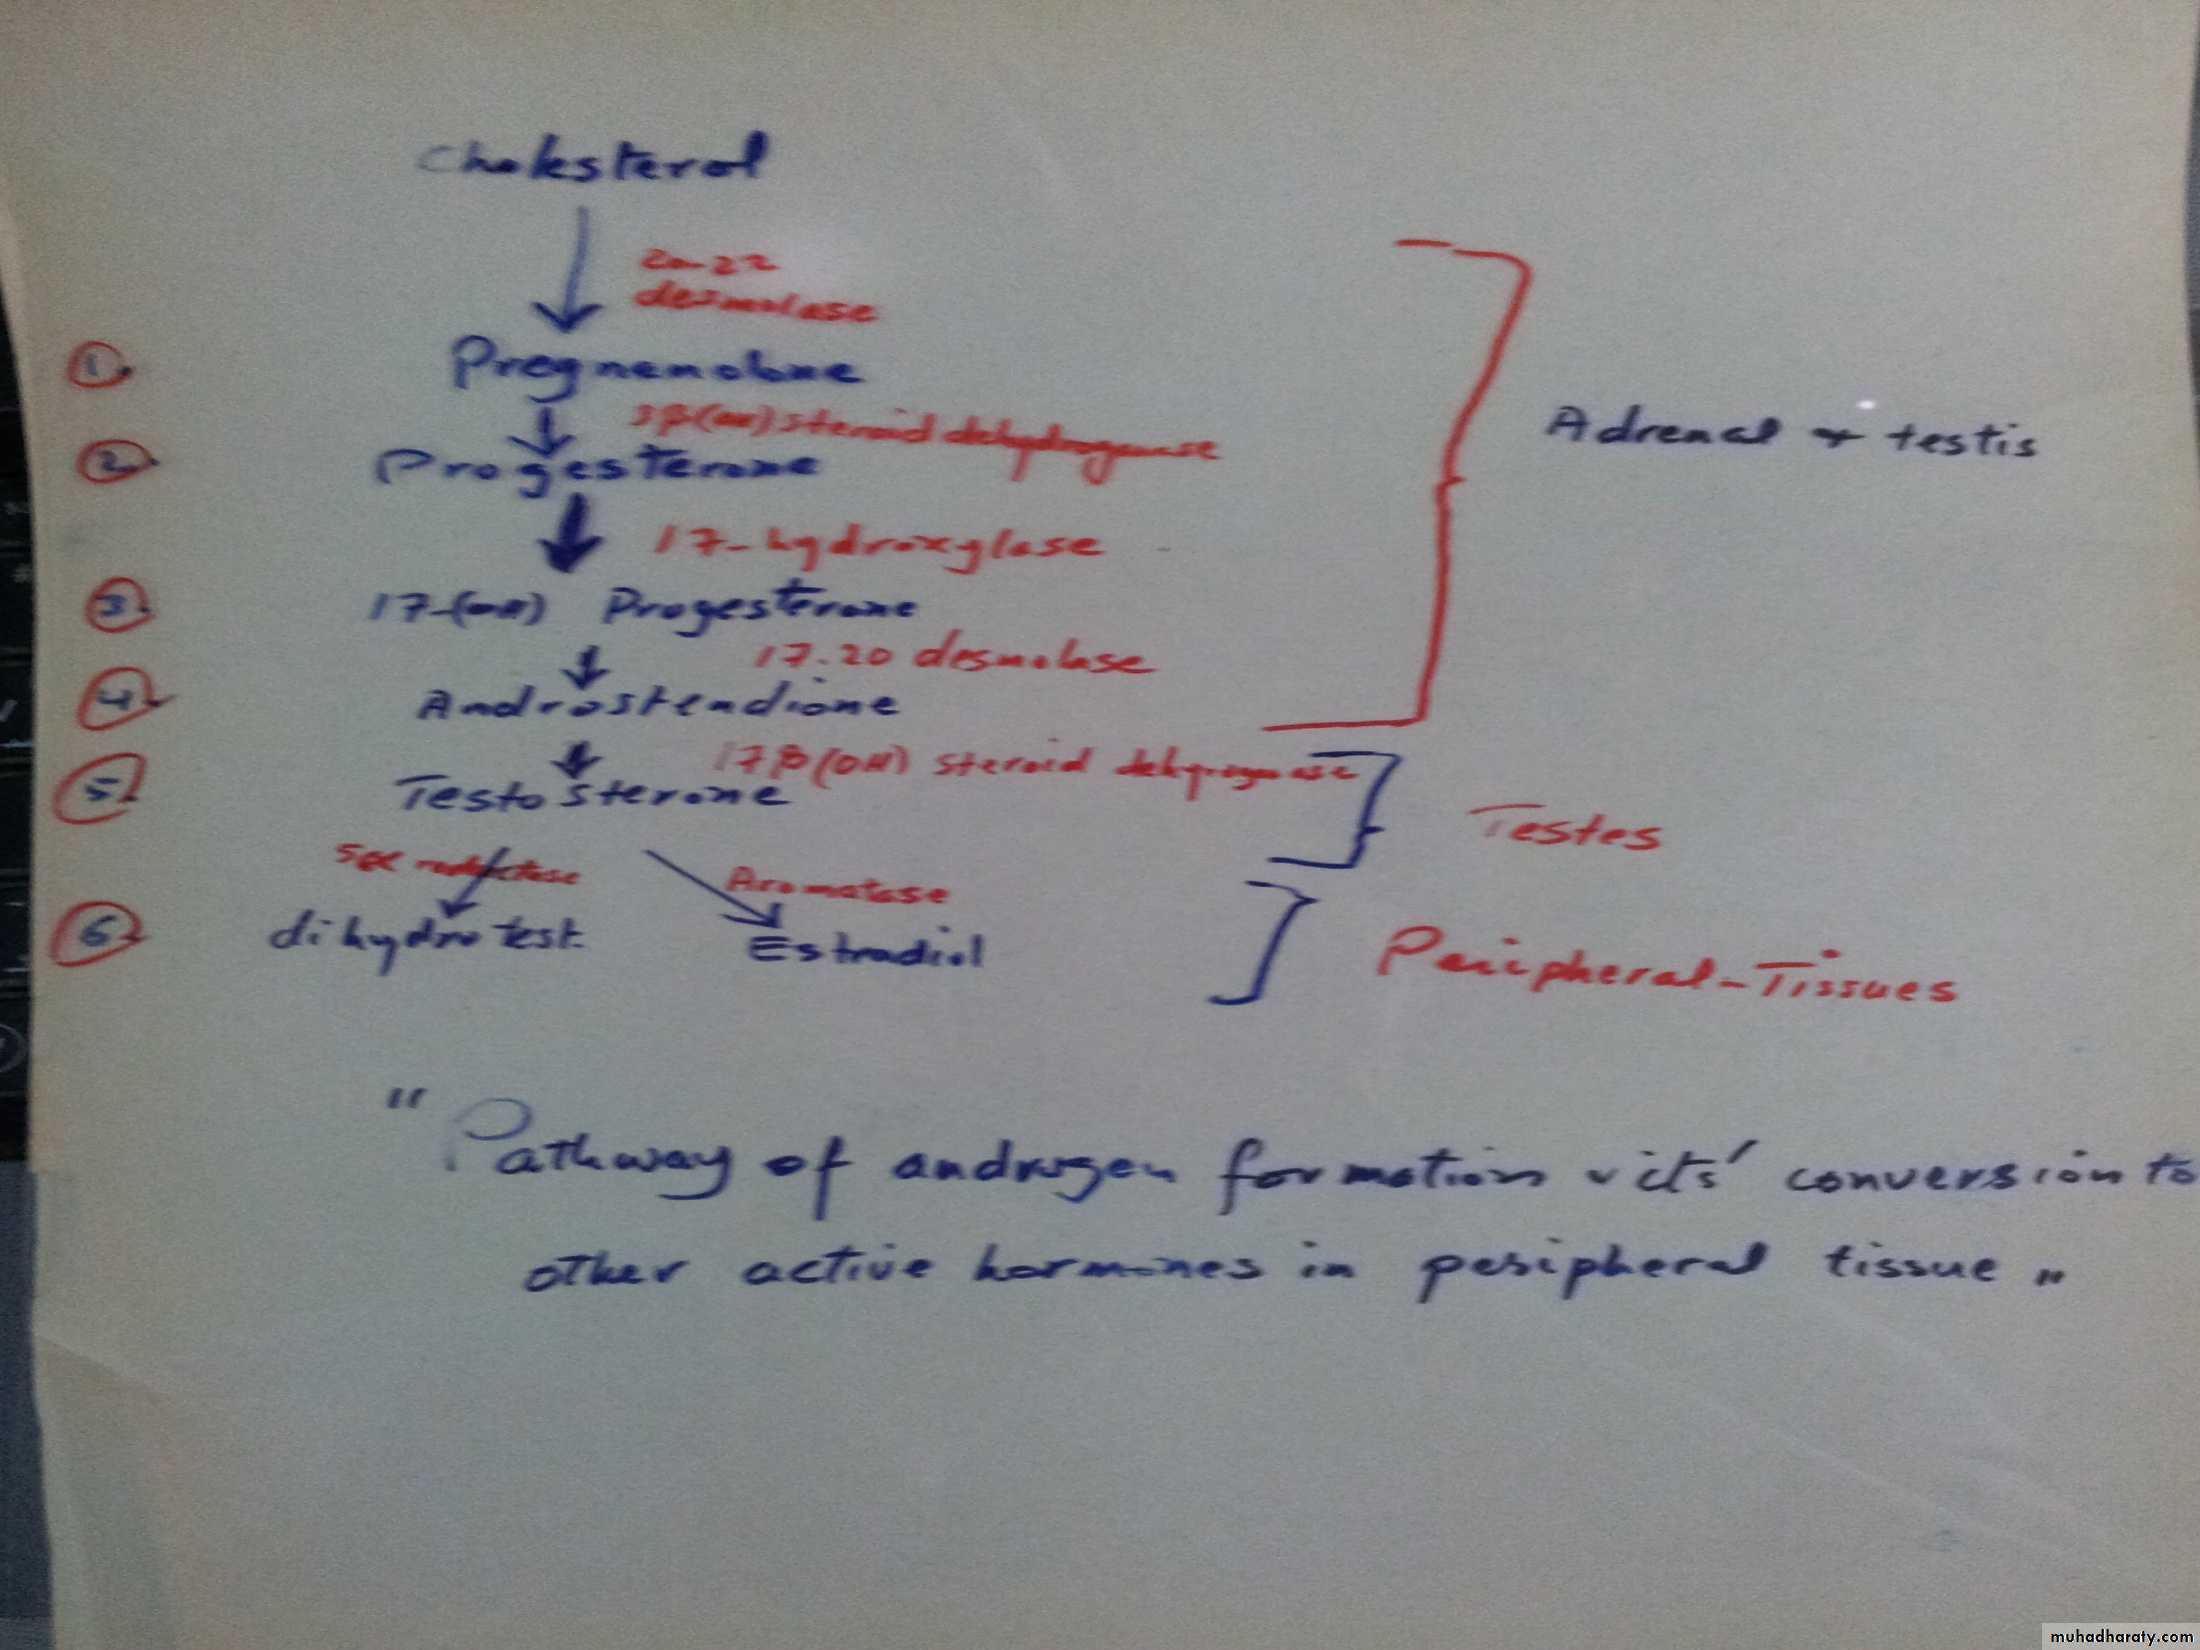 Cholesterol
20-22
desmolase
1 Pregnenolone
3β(OH) steroid dehydrogenase
2 Progesterone
Adrenal & testis
17-hydroxylase
3 17-(OH) Progesterone
17.20 desmolase
4 Androstendione
17β(OH) steroid dehyrogenase
5 Testosterone
Testes
5α reductase
Aromatase
6 dihydrotest. Estradiol
Peripheral-Tissues
"Pathway of androgen formation & its' conversion to
other active hormones in peripheral tissue"
muhadharaty.com